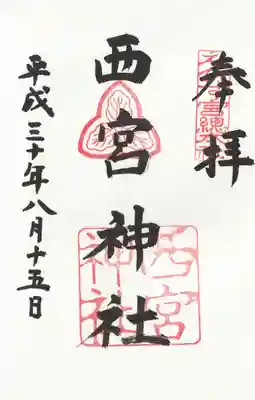 奉拝
西宮神社
平成三十年八月十五日
西宮
神社